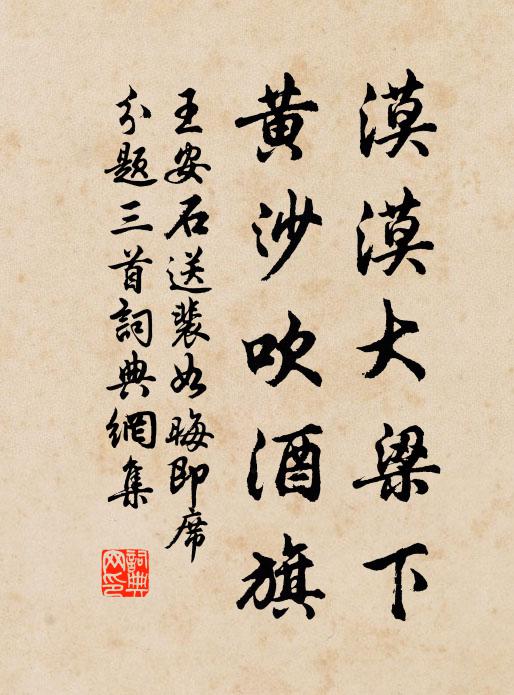 漠漠大梁下
黃沙吹酒旗
王安石送裴如晦即席
分題三首詞典網集
詞典
网印